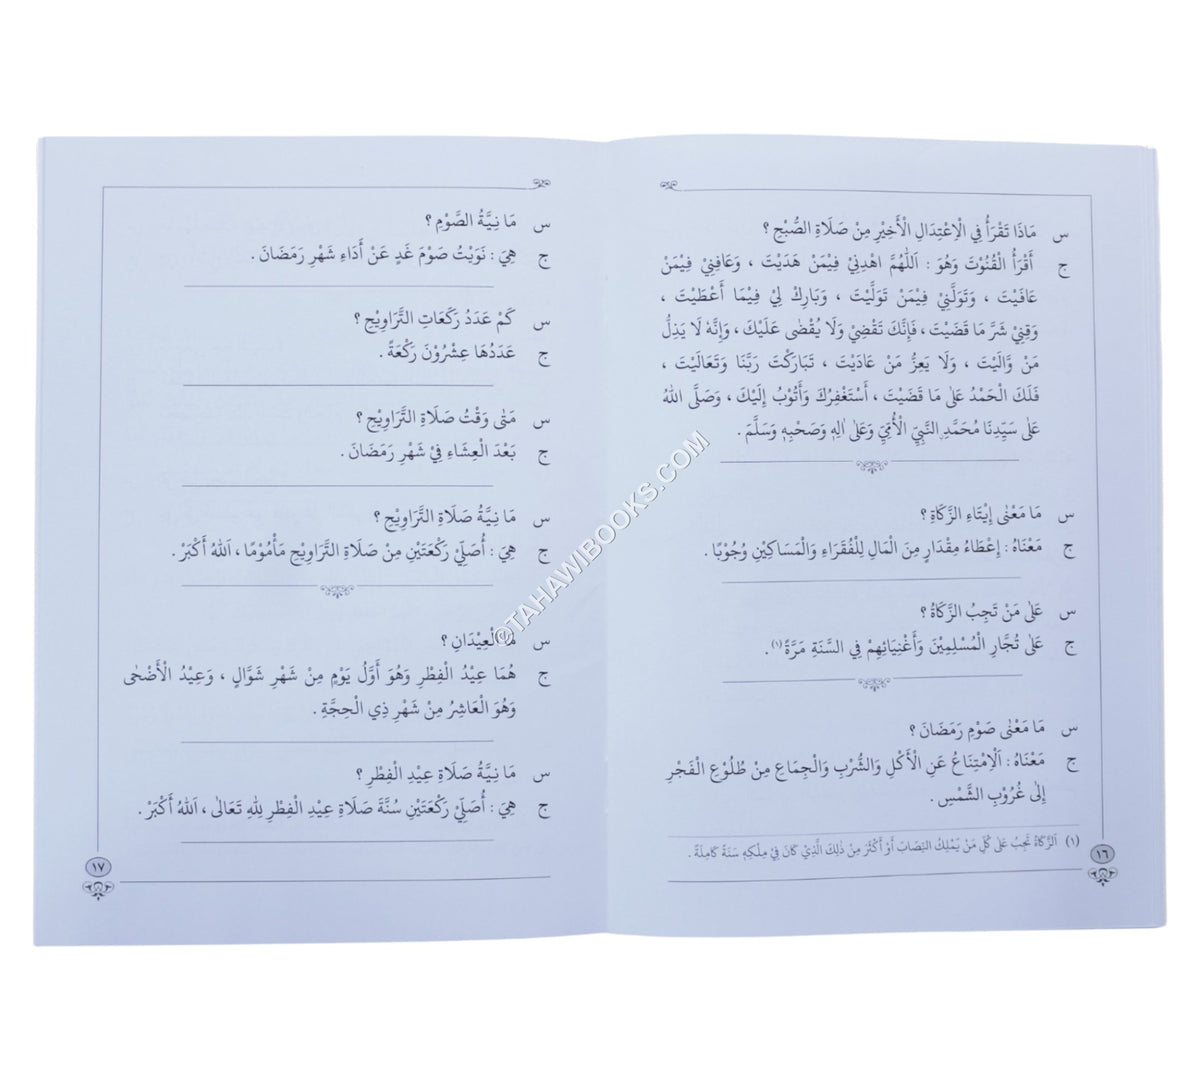 س مَاذَا تَقْرَأُ فِي الْاِعْتِدَالِ الْأَخِيْرِ مِنْ صَلَاةِ الصُّبْحِ ؟
ج أَقْرَأُ الْقُنُوْتَ وَهُوَ : اَللّٰهُمَّ اهْدِنِيْ فِيْمَنْ هَدَيْتَ ، وَعَافِنِيْ فِيْمَنْ
عَافَيْتَ ، وَتَوَلَّنِيْ فِيْمَنْ تَوَلَّيْتَ ، وَبَارِكْ لِيْ فِيْمَا أَعْطَيْتَ ،
وَقِنِيْ شَرَّ مَا قَضَيْتَ ، فَإِنَّكَ تَقْضِيْ وَلَا يُقْضٰى عَلَيْكَ ، وَإِنَّهٗ لَا يَذِلُّ
مَنْ وَّالَيْتَ ، وَلَا يَعِزُّ مَنْ عَادَيْتَ ، تَبَارَكْتَ رَبَّنَا وَتَعَالَيْتَ ،
فَلَكَ الْحَمْدُ عَلٰى مَا قَضَيْتَ ، أَسْتَغْفِرُكَ وَأَتُوْبُ إِلَيْكَ ، وَصَلَّى اللهُ
عَلٰى سَيِّدِنَا مُحَمَّدِ النَّبِيِّ الْأُمِّيِّ وَعَلٰى اٰلِهٖ وَصَحْبِهٖ وَسَلَّمَ .
س مَا مَعْنٰى إِيْتَاءِ الزَّكَاةِ ؟
ج مَعْنَاهُ : إِعْطَاءُ مِقْدَارٍ مِنَ الْمَالِ لِلْفُقَرَاءِ وَالْمَسَاكِيْنِ وُجُوْبًا .
س عَلٰى مَنْ تَجِبُ الزَّكَاةُ ؟
ج عَلٰى تُجَّارِ الْمُسْلِمِيْنَ وَأَغْنِيَائِهِمْ فِي السَّنَةِ مَرَّةً (١) .
س مَا مَعْنٰى صَوْمِ رَمَضَانَ ؟
ج مَعْنَاهُ : اَلْاِمْتِنَاعُ عَنِ الْأَكْلِ وَالشُّرْبِ وَالْجِمَاعِ مِنْ طُلُوْعِ الْفَجْرِ
إِلٰى غُرُوْبِ الشَّمْسِ .
(١) اَلزَّكَاةُ تَجِبُ عَلٰى كُلِّ مَنْ يَمْلِكُ النِّصَابَ أَوْ أَكْثَرَ مِنْ ذٰلِكَ الَّذِيْ كَانَ فِيْ مِلْكِهٖ سَنَةً كَامِلَةً .
١٦
س مَا نِيَّةُ الصَّوْمِ ؟
ج هِيَ : نَوَيْتُ صَوْمَ غَدٍ عَنْ أَدَاءِ شَهْرِ رَمَضَانَ .
س كَمْ عَدَدُ رَكَعَاتِ التَّرَاوِيْحِ ؟
ج عَدَدُهَا عِشْرُوْنَ رَكْعَةً .
س مَتٰى وَقْتُ صَلَاةِ التَّرَاوِيْحِ ؟
ج بَعْدَ الْعِشَاءِ فِيْ شَهْرِ رَمَضَانَ .
س مَا نِيَّةُ صَلَاةِ التَّرَاوِيْحِ ؟
ج هِيَ : أُصَلِّيْ رَكْعَتَيْنِ مِنْ صَلَاةِ التَّرَاوِيْحِ مَأْمُوْمًا ، اَللهُ أَكْبَرْ .
س مَا الْعِيْدَانِ ؟
ج هُمَا عِيْدُ الْفِطْرِ وَهُوَ أَوَّلُ يَوْمٍ مِنْ شَهْرِ شَوَّالٍ ، وَعِيْدُ الْأَضْحٰى
وَهُوَ الْعَاشِرُ مِنْ شَهْرِ ذِي الْحِجَّةِ .
س مَا نِيَّةُ صَلَاةِ عِيْدِ الْفِطْرِ ؟
ج هِيَ : أُصَلِّيْ رَكْعَتَيْنِ سُنَّةَ صَلَاةِ عِيْدِ الْفِطْرِ لِلّٰهِ تَعَالٰى ، اَللهُ أَكْبَرْ .
١٧
©TAHAWIBOOKS.COM